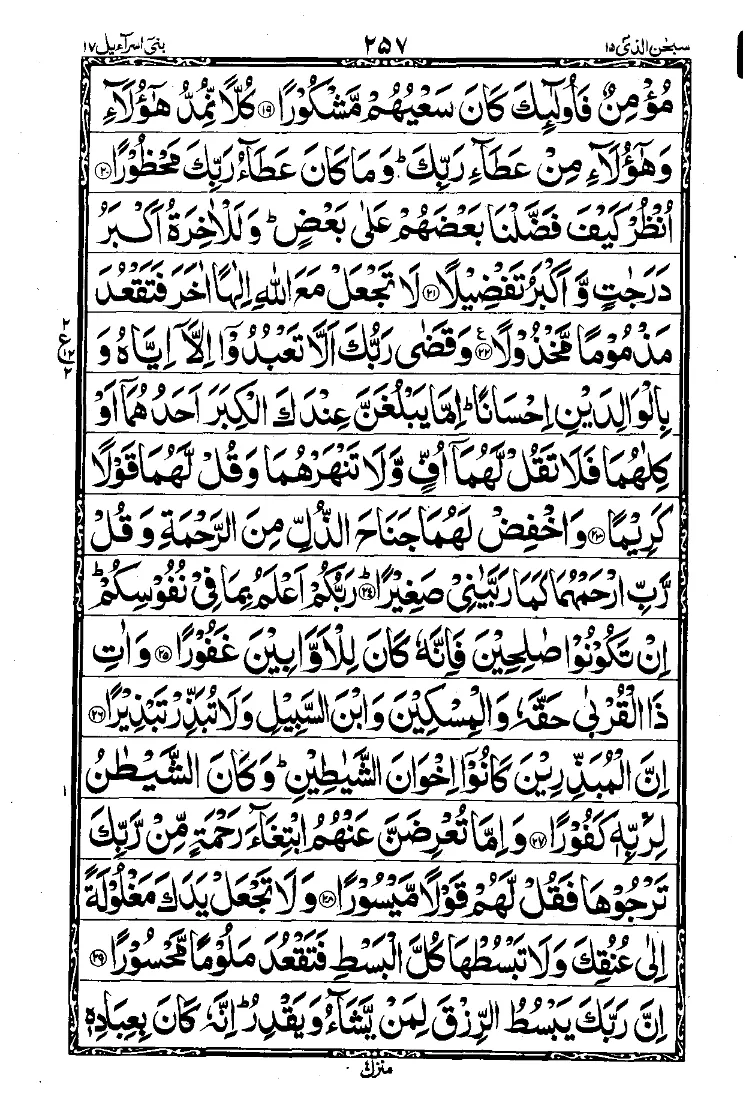 سبحٰن الذی ١٥ ٢٥٧ بنی اسرآءیل ١٧
مُؤْمِنٌ فَاُولٰٓئِكَ كَانَ سَعْيُهُمْ مَّشْكُوْرًا ﴿١٩﴾ كُلًّا نُّمِدُّ هٰٓؤُلَآءِ
وَهٰٓؤُلَآءِ مِنْ عَطَآءِ رَبِّكَ ؕ وَمَا كَانَ عَطَآءُ رَبِّكَ مَحْظُوْرًا ﴿٢٠﴾
اُنْظُرْ كَيْفَ فَضَّلْنَا بَعْضَهُمْ عَلٰى بَعْضٍ ؕ وَلَلْاٰخِرَةُ اَكْبَرُ
دَرَجٰتٍ وَّ اَكْبَرُ تَفْضِيْلًا ﴿٢١﴾ لَا تَجْعَلْ مَعَ اللّٰهِ اِلٰهًا اٰخَرَ فَتَقْعُدَ
مَذْمُوْمًا مَّخْذُوْلًا ﴿٢٢﴾ ع وَقَضٰى رَبُّكَ اَلَّا تَعْبُدُوْٓا اِلَّآ اِيَّاهُ وَ
٢ ع ١٢ ٢
بِالْوَالِدَيْنِ اِحْسَانًا ؕ اِمَّا يَبْلُغَنَّ عِنْدَكَ الْكِبَرَ اَحَدُهُمَآ اَوْ
كِلٰهُمَا فَلَا تَقُلْ لَّهُمَآ اُفٍّ وَّلَا تَنْهَرْهُمَا وَقُلْ لَّهُمَا قَوْلًا
كَرِيْمًا ﴿٢٣﴾ وَاخْفِضْ لَهُمَا جَنَاحَ الذُّلِّ مِنَ الرَّحْمَةِ وَقُلْ
رَّبِّ ارْحَمْهُمَا كَمَا رَبَّيٰنِيْ صَغِيْرًا ﴿٢٤﴾ ؕ رَبُّكُمْ اَعْلَمُ بِمَا فِيْ نُفُوْسِكُمْ ؕ
اِنْ تَكُوْنُوْا صٰلِحِيْنَ فَاِنَّهٗ كَانَ لِلْاَوَّابِيْنَ غَفُوْرًا ﴿٢٥﴾ وَاٰتِ
ذَا الْقُرْبٰى حَقَّهٗ وَالْمِسْكِيْنَ وَابْنَ السَّبِيْلِ وَلَا تُبَذِّرْ تَبْذِيْرًا ﴿٢٦﴾
اِنَّ الْمُبَذِّرِيْنَ كَانُوْٓا اِخْوَانَ الشَّيٰطِيْنِ ؕ وَكَانَ الشَّيْطٰنُ
لِرَبِّهٖ كَفُوْرًا ﴿٢٧﴾ وَاِمَّا تُعْرِضَنَّ عَنْهُمُ ابْتِغَآءَ رَحْمَةٍ مِّنْ رَّبِّكَ
تَرْجُوْهَا فَقُلْ لَّهُمْ قَوْلًا مَّيْسُوْرًا ﴿٢٨﴾ وَلَا تَجْعَلْ يَدَكَ مَغْلُوْلَةً
اِلٰى عُنُقِكَ وَلَا تَبْسُطْهَا كُلَّ الْبَسْطِ فَتَقْعُدَ مَلُوْمًا مَّحْسُوْرًا ﴿٢٩﴾
اِنَّ رَبَّكَ يَبْسُطُ الرِّزْقَ لِمَنْ يَّشَآءُ وَيَقْدِرُ ؕ اِنَّهٗ كَانَ بِعِبَادِهٖ
منزل ٤